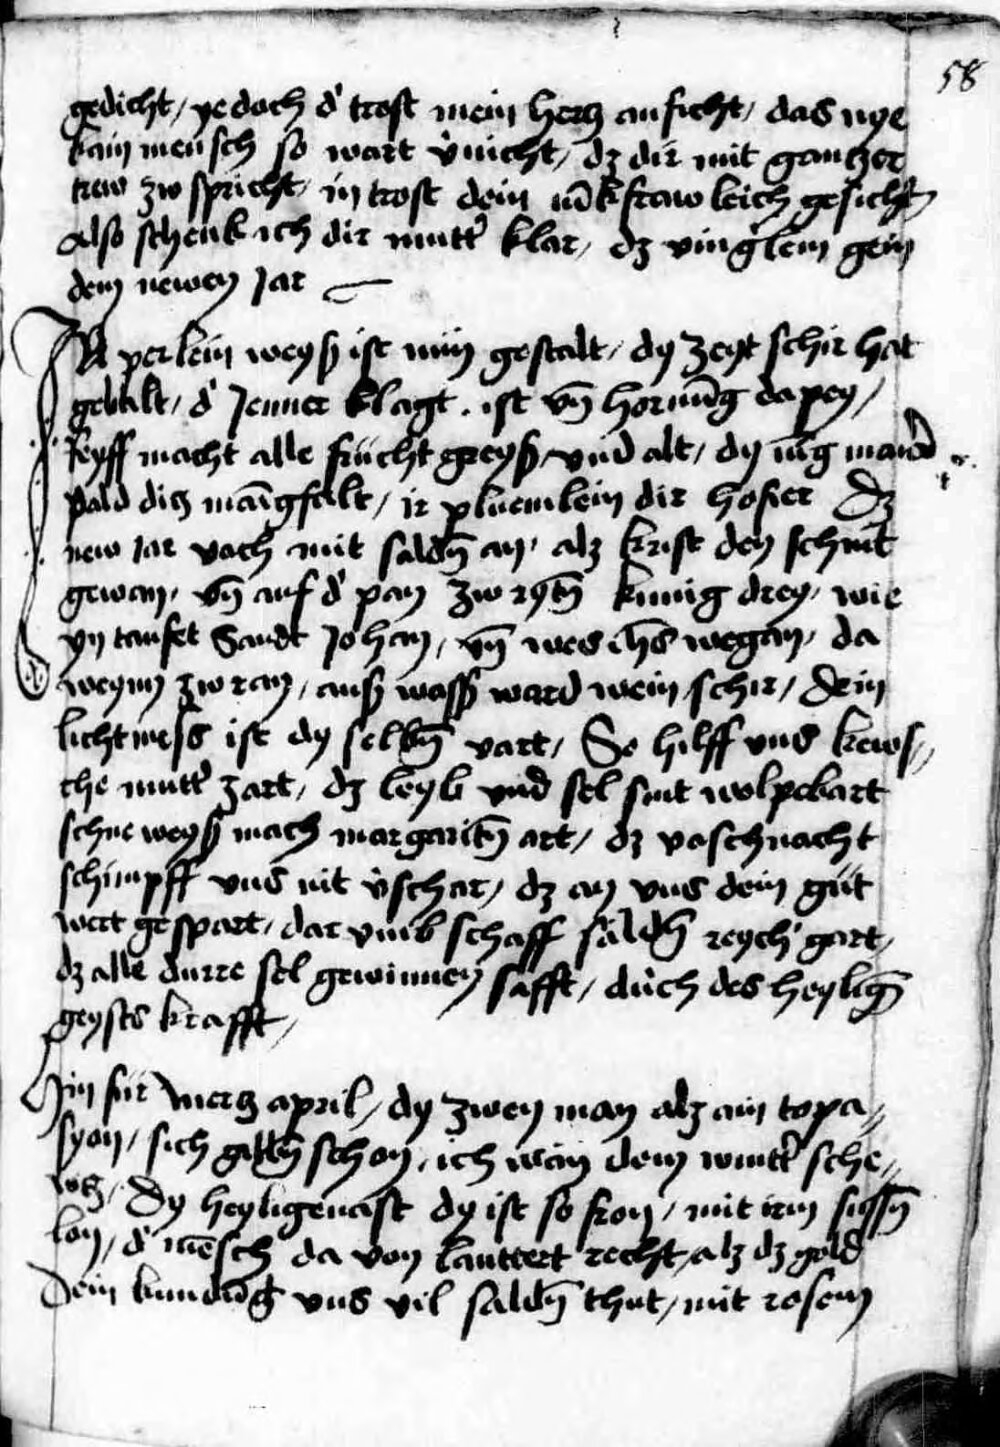 58
gedicht / yedoch d' trost mein hercz anficht / das nye
kain mensch so wart v'nicht / dz dir mit gantzer
trew zw spricht / in trost dein iūckfrawleich gesicht
Also schenk ich dir mutt' klar / dz vinglein gein
dem newen Jar
Ain perlein weyß ist nun gestalt / dy zeyt schir hat
gewalt / d' Jenner klagt . ist vn̄ hornūg dapey /
Reyff macht alle frücht greyß / vnd alt / dy iūg
pald dich māgfalt / ir pluemlein dir hofier Dz
new Jar vach mit saldn̄ an / alz krist den schnit
gewan / vn̄ auf d' pan zw rytn̄ kunig drey / wie
yn taufet Sandt Johan / vn̄ wes ihs wegan / da
weynn zw ran / auß wass' ward wein schir / Dein
lichtmess ist dy selbn̄ vart / So hilff vns kews
che mutt' zart / dz leyb vnd sel sint wolpebart
schneweyß mach margaritn̄ art / dz vaschnacht
schimpff vns nit v'schar / dz an vns dein güt
wert gespart / dar vmb schaff säldn̄ reych' gart /
dz alle durre sel gewinnen safft / durch des heylign̄
geysts krafft /
Hin für Mercz april / dy zwen man alz ain topa
syon / sich schon / ich wān dem wintt' sche
Dy heyligenast dy ist so fron / mit irm sussn̄
lon / d' mēsch da von lauttert recht / alz dz gold
Dein kundūg vns vil saldn̄ thut / mit rosem